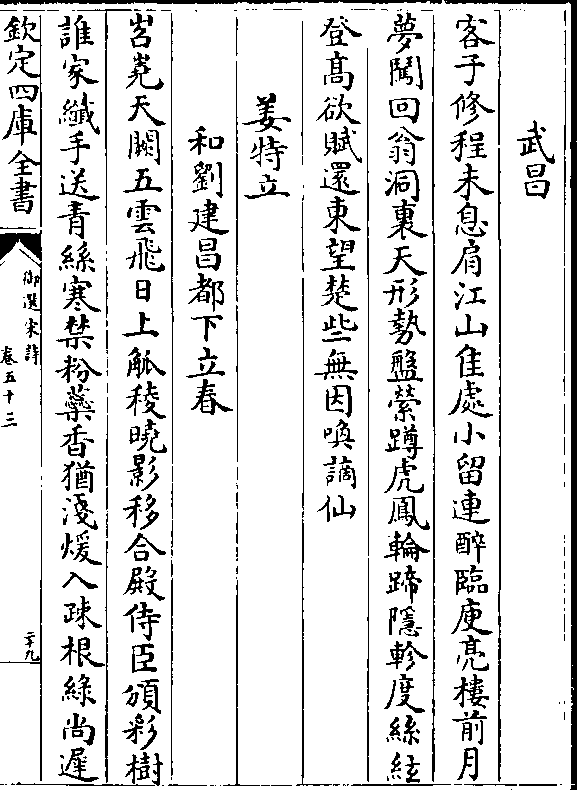 武昌
客子修程未息肩江山佳處小留連醉臨庾亮樓前月
夢闖回翁洞裏天形勢盤縈蹲虎鳳輪蹄隱軫度絲絃
登髙欲賦還東望楚些無因喚謫仙
姜特立
和劉建昌都下立春
岧嶤天闕五雲飛日上觚稜曉影移合殿侍臣頒彩樹
誰家纖手送青絲寒禁粉蘂香猶淺煖入疎根綠尚遲
欽定四庫全書
御選宋詩
卷五十三
二十九